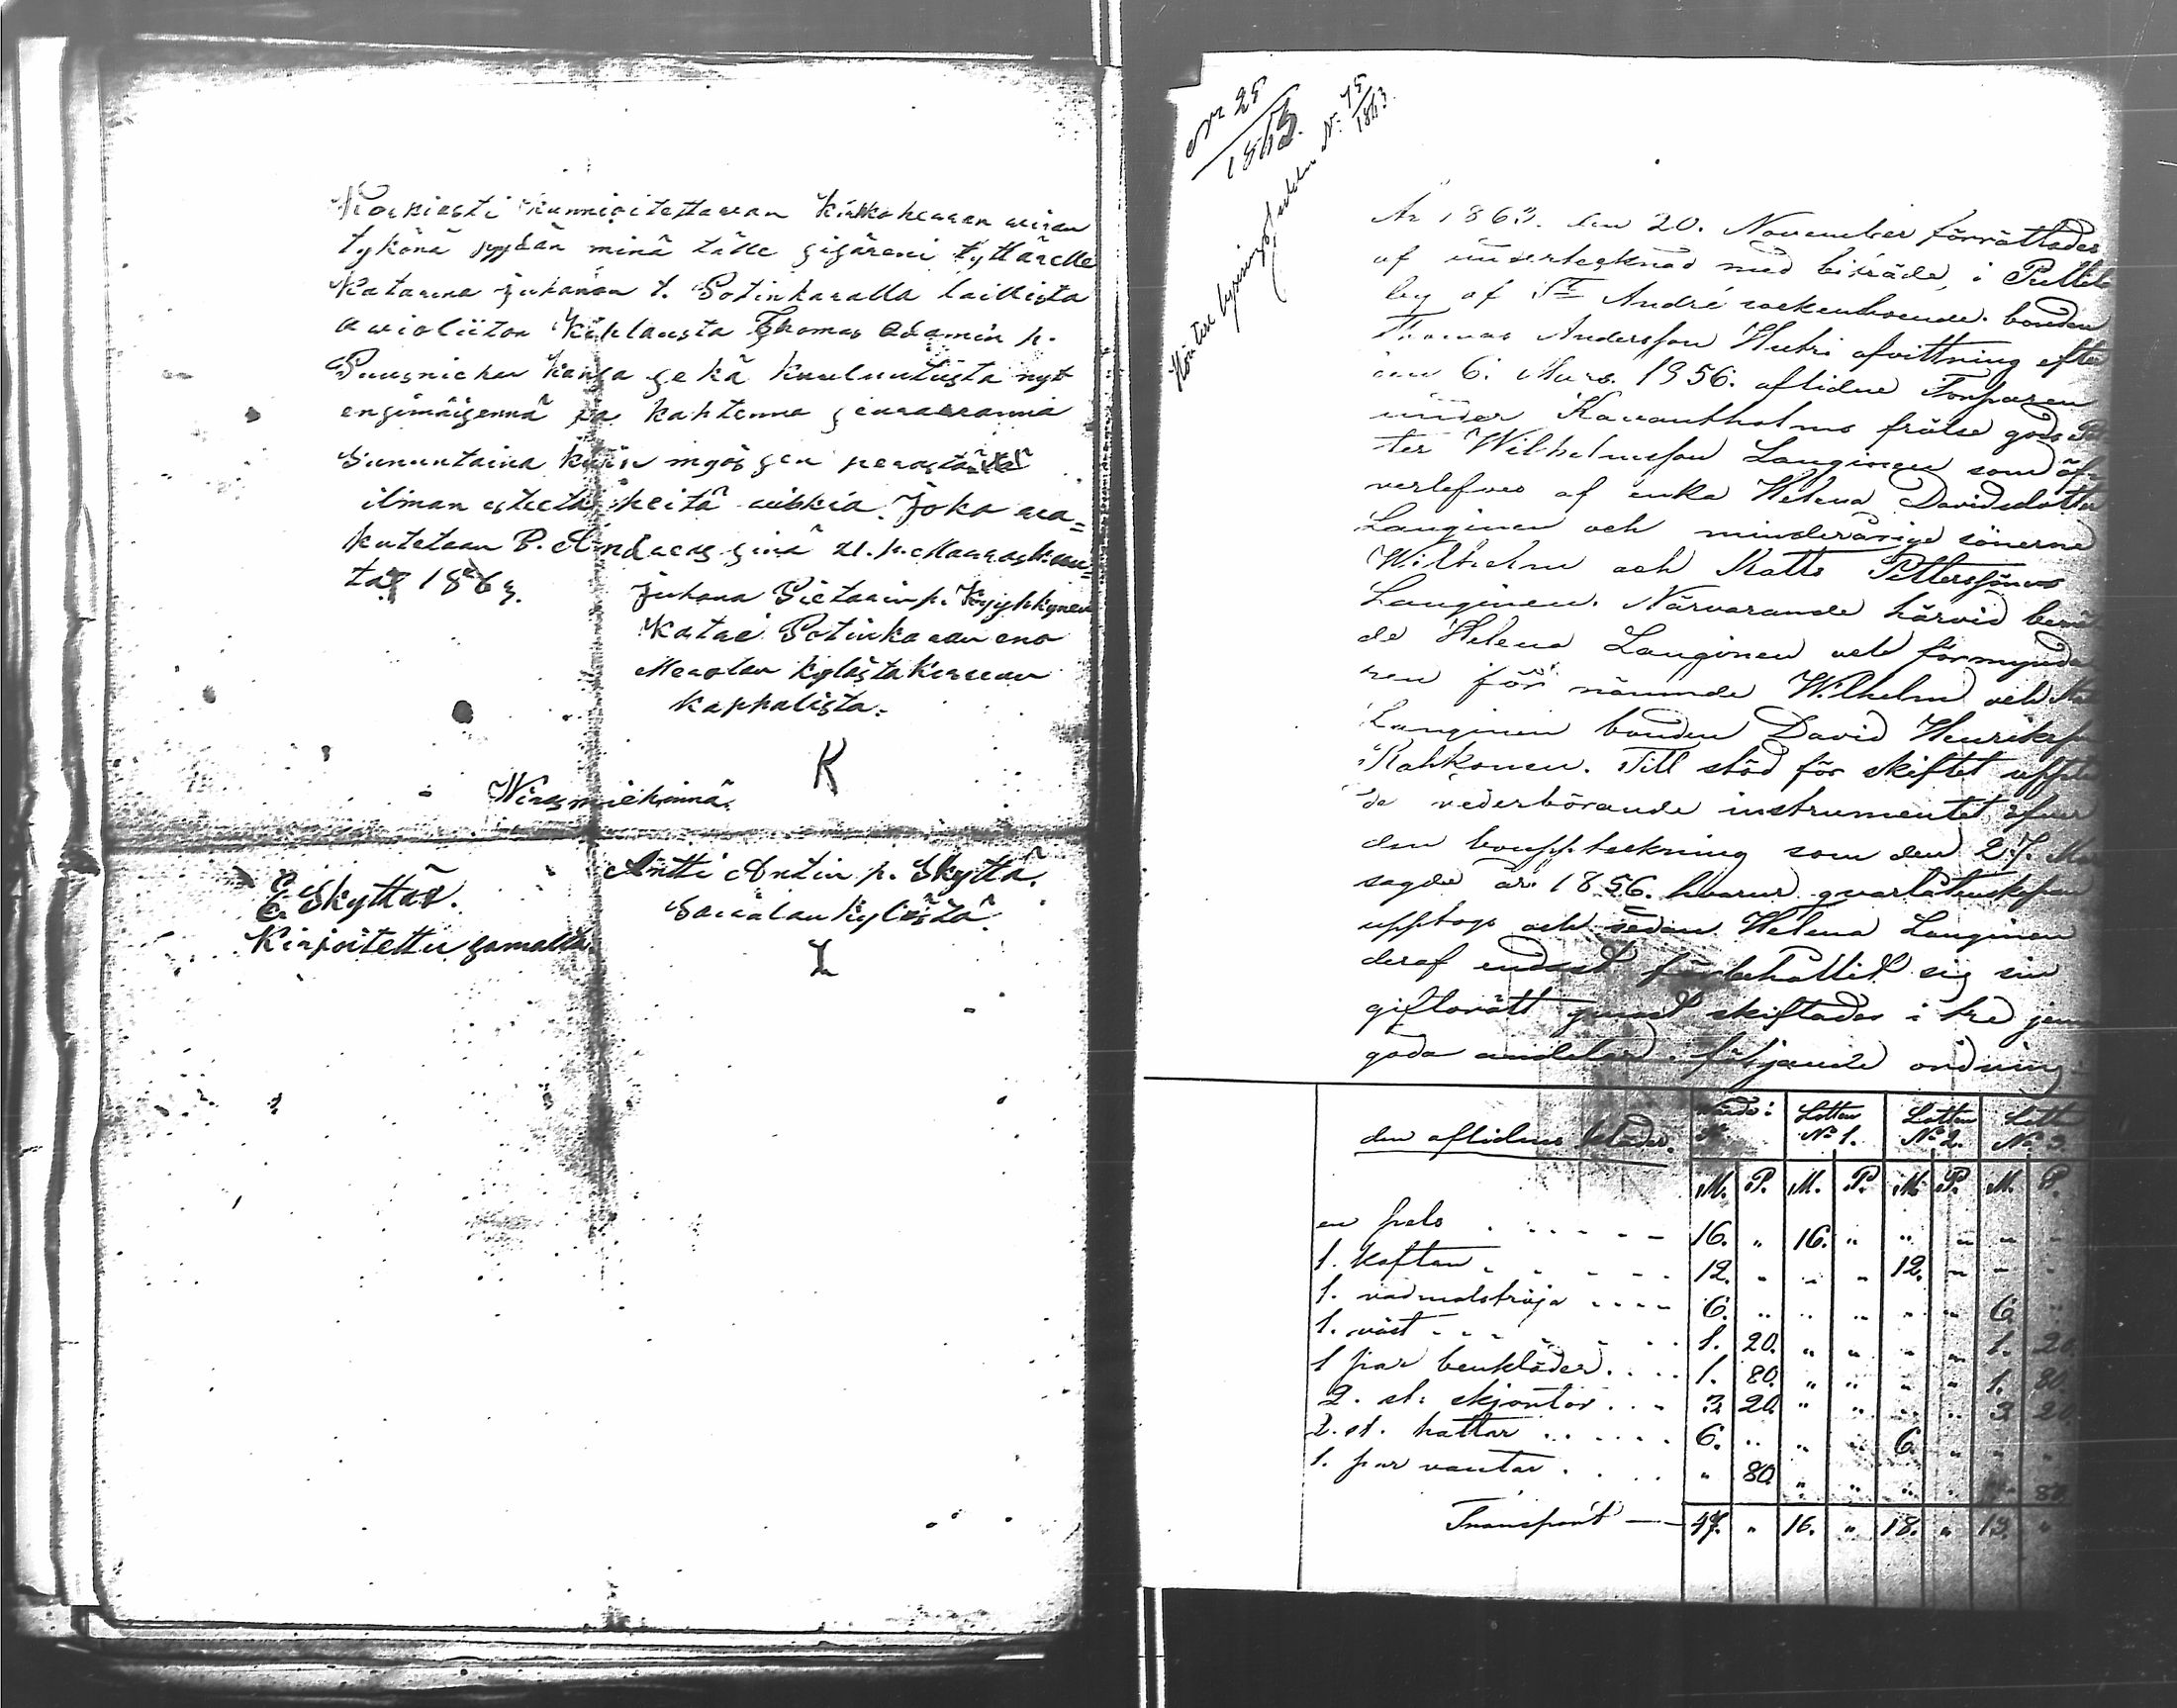 Korkiasti kunnioitettawan kirkkoherran wiran
tykönä pyydän minä tälle sisäreni tyttärelle
Katarina Juhanan t. Potinkaralla laillista
awioliiton kihlausta Thomas Adamin p.
Suusnicken kansa sekä kuuluutusta nyt
ensimäisennä ja kahtenna seuraavanna
Sununtaina kuin myös sen perästä
ilman estettä heitä wihkiä. Joka wa=
kutetaan P. Andraeas sinä 21. p. Marrask.
ta 1863.
Juhana Pietarin p. Kyyhkynen
Katar Potinkaran eno
Merolan kylästä Kirwun
kappalista.
K
Wirasmiehinnä.
E. Skyttää.
Kirjoitettu samalta
Antti Antin p. Skyttä.
Sairalan kylästä.
I
No 25
1863.
No. 75
1863
År 1863. den 20. November förrättades
af undertecknad med biträde, i Pullila
by af St André socken boende bonden
Thomas Andersson Hutri afvittning efter
den 6. Mars. 1856. aflidne Torparen
under Kavantholms frälse gods Pet
ter Wilhelmsson Langinen som öf-
verlefves af enka Helena Davidsdotter
Langinen och minderårige sönerne
Wilhelm och Matts Petterssöner
Langinen. Närvarande härvid berör
de Helena Langinen och förmynda
ren för nämnde Wilhelm och Mat
Langinen bonden David Henriksson
Rahkonen. Till stöd för skiftet uppte
de vederbörande instrumentet öfver
den bouppteckning som den 27. Mar
sagde år 1856. hvarur qvarlåtenskapen
upptogs och sedan Helena Langinen
deraf endast förbehållit sig sin
giftorätt genast skiftades i tre jem
goda andelar i följande ordning
den aflidnes kläder. Värde: Lotten No 1. Lotten No 2. Lotten No 3.
M. P. M. P. M. P. M. P.
en pels 16. " 16. " " " " "
1. kaftan 12. " " " 12. " " "
1. vadmalströja 6. " " " " " 6. "
1. väst 1. 20. " " " " 1. 20.
1 par benkläder 1. 80. " " " " 1. 80.
2. st. skjortor 3 20. " " " " 3 20
2. st. hattar 6. " " " 6. " " "
1. par vantar " 80. " " " " " 80.
Transport 47. " 16. " 18. " 13. "